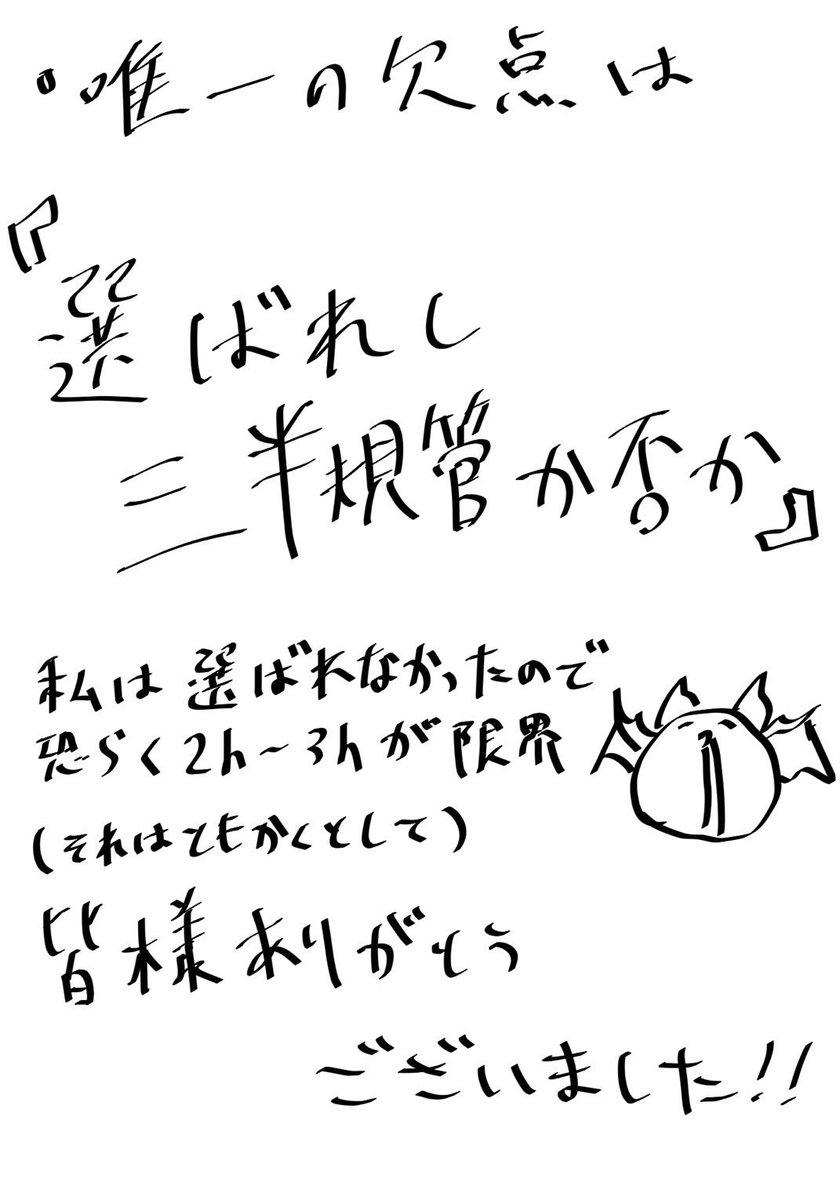 ・唯一の欠点は
『選ばれし
三半規管か否か』
私は選ばれなかったので
恐らく2h~3hが限界
(それはともかくとして)
皆様ありがとう
ございました!!